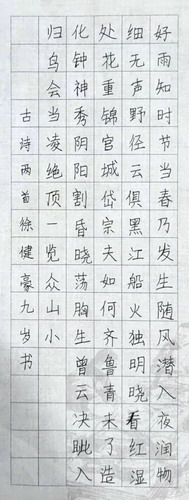 好雨知时节当春乃发生随风潜入夜润物
细无声野径云俱黑江船火独明晓看红湿
处花重锦官城岱宗夫如何齐鲁青未了造
化钟神秀阴阳割昏晓荡胸生曾云决眦入
归鸟会当凌绝顶一览众山小
古诗两首徐健豪九岁书